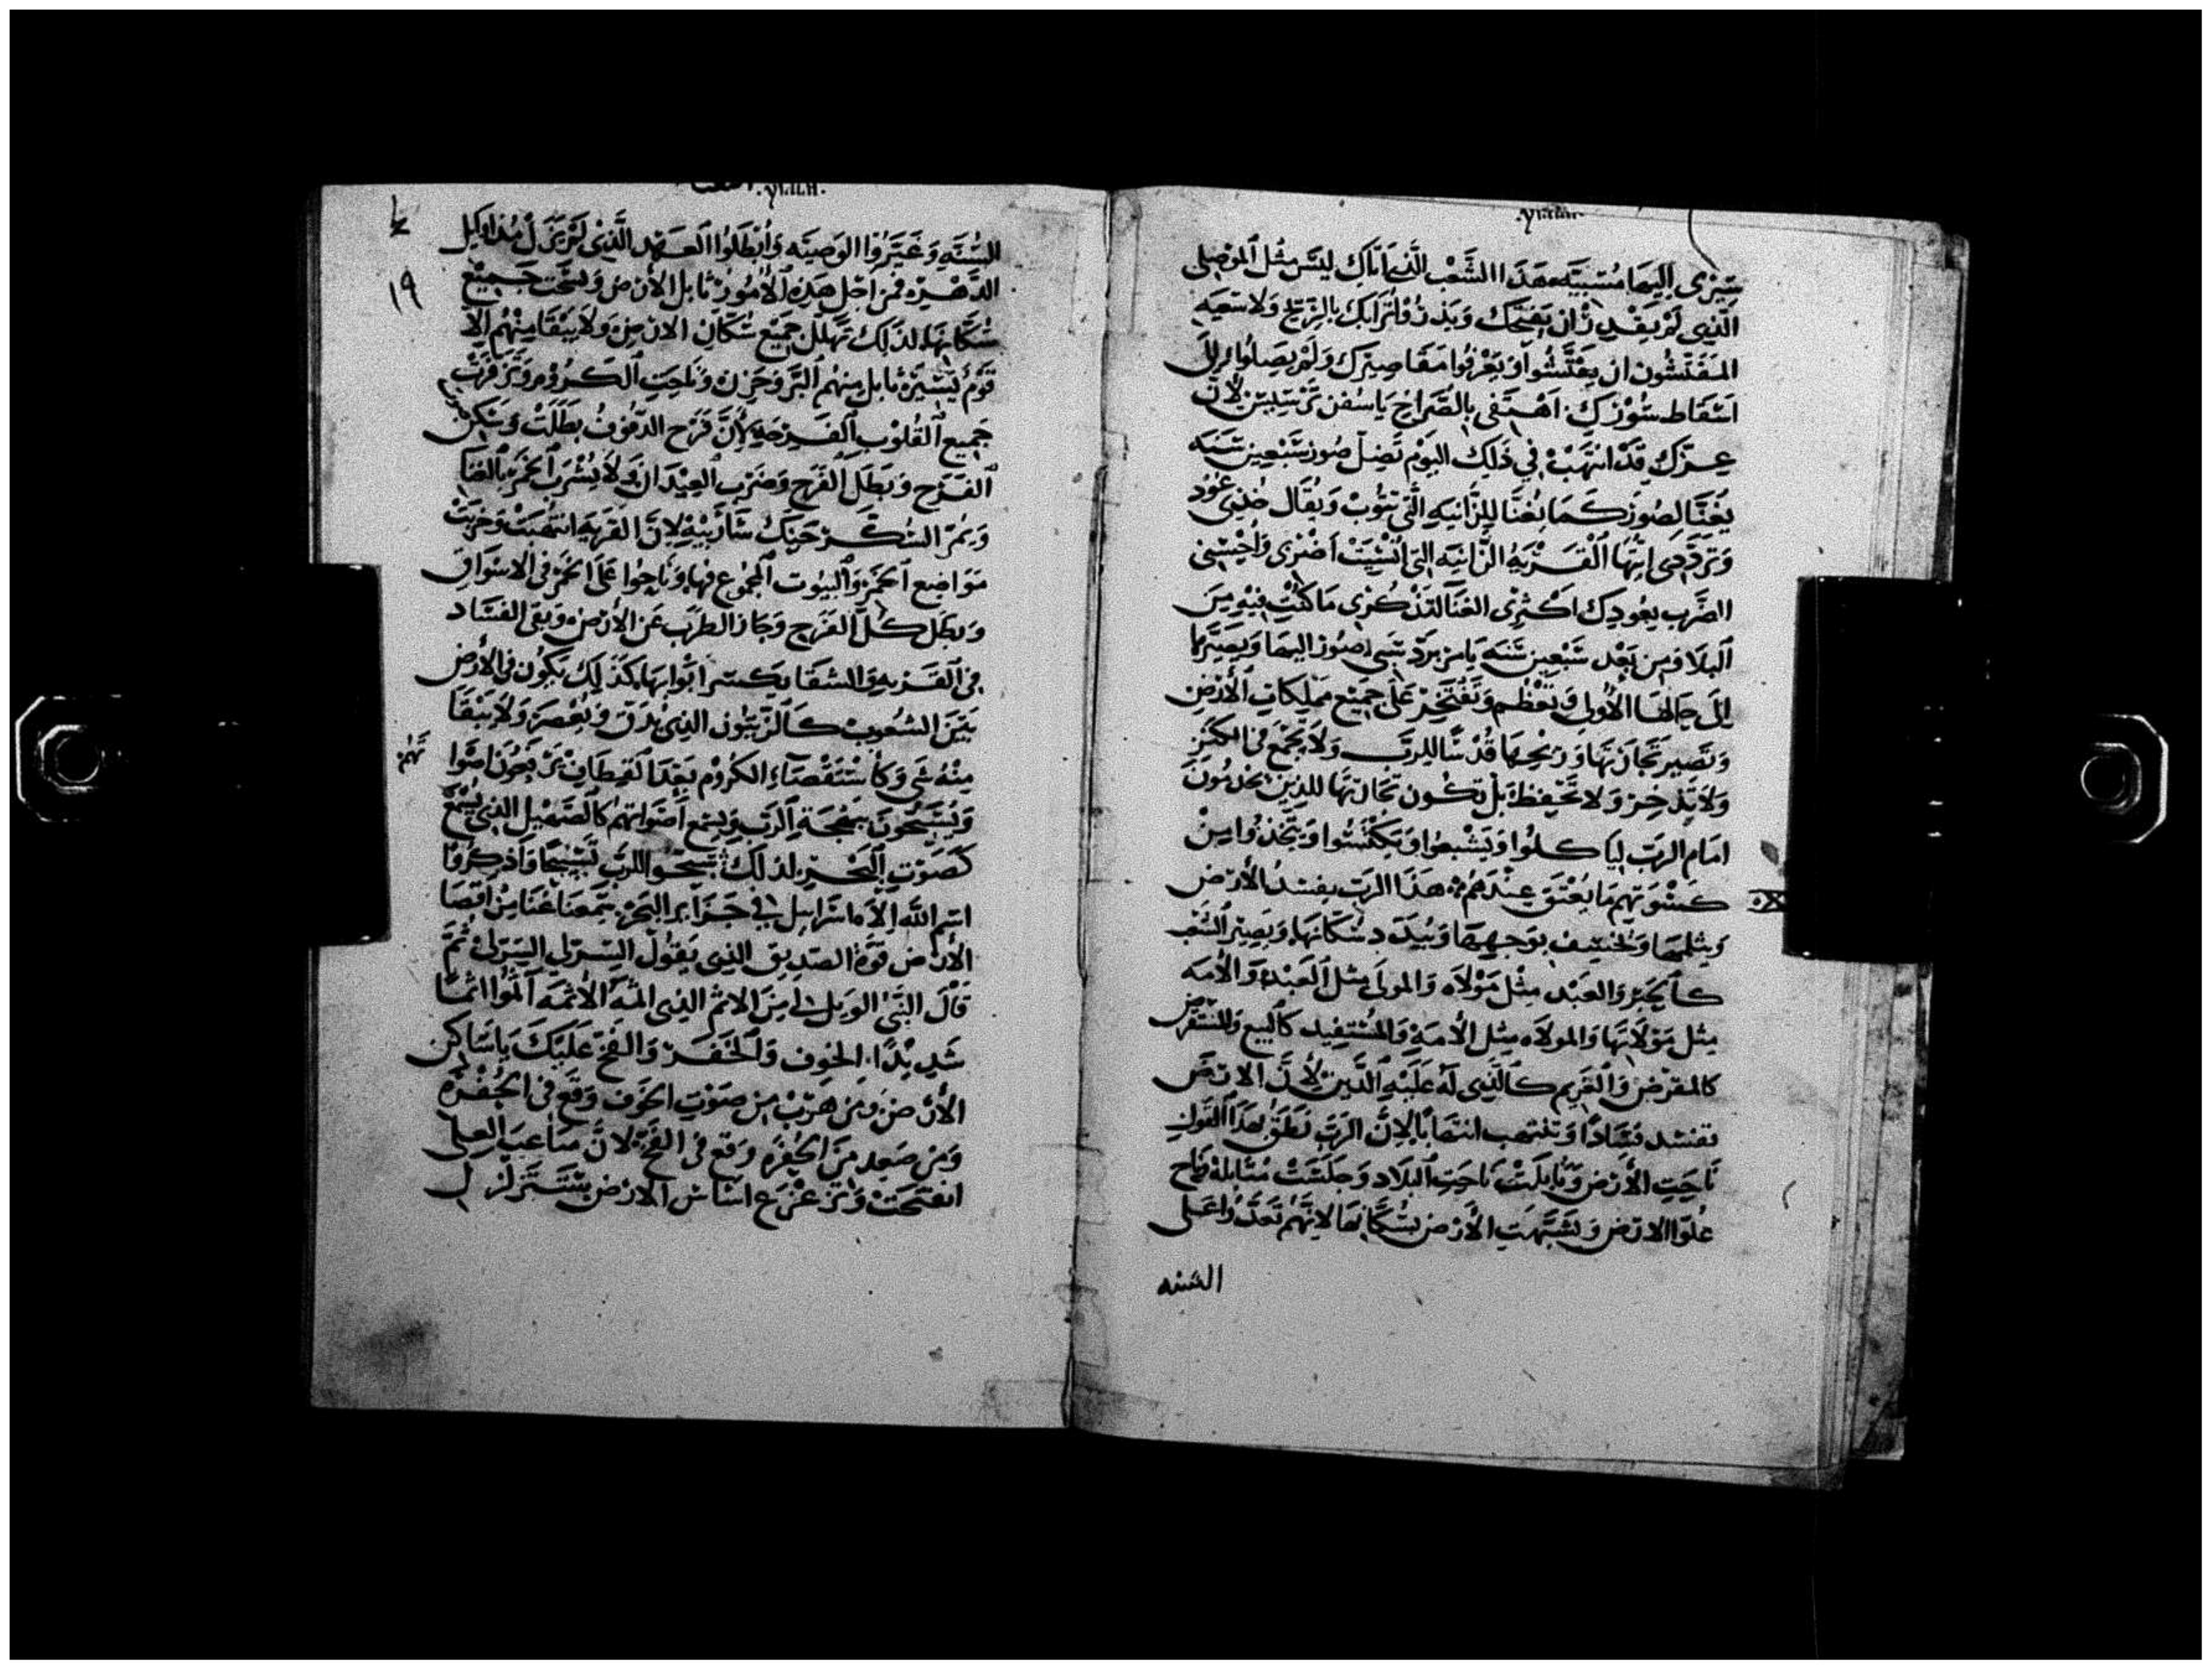 سيرى اليها مسبيه هذا الشعب الذى اتاك ليس مثل الموصلى
الذى لم يقدر ان يفتحك ويذروا ترابك بالريح ولا سعيه
المفتشون ان يفتشوا ويعرفوا مقاصيرك ولم يصلوا الى
اسقاط سورك اهتفى بالصراخ ياسفن ترسيس لان
عزك قد انتهب فى ذلك اليوم تضل صور سبعين سنه
يغنا لصور كما يغنا للزانيه التى تتوب ويقال خذى عود
وترددى ايتها القريه الزانيه التى انسيت اضربى واحسنى
الضرب بعودك اكثرى الغنا لتذكرى ما كنت فيه من
البلا ومن بعد سبعين سنه يامر برد سبى صور اليها ويصيرها
الى حالها الاولى وتعظم وتفتخر على جميع مملكات الارض
وتصير تجارتها وربحها قدسا للرب ولا يجمع فى الكنز
ولا يدخر ولا تحفظ بل تكون تجارتها للذين يخدمون
امام الرب لياكلوا ويشبعوا ويكتسوا ويتخذوا من
كسوتهم ما يعتق عندهم هذا الرب يفسد الارض
ويثلمها ويخسف بوجهها ويبدد سكانها ويصير الشعب
كالحبر والعبد مثل مولاه والمولى مثل العبد والامه
مثل مولاتها والمولاه مثل الامه والمستفيد كالبيع والمستقرض
كالمقرض والغريم كالذى له عليه الدين لان الارض
تفسد فسادا وتنتهب انتهابا لان الرب نطق بهذا القول
ناحت الارض وتابلت ناحت البلاد وجلست متابله وناح
علوا الارض وتشبهت الارض بسكانها لانهم تعدوا على
السنه
١٩
السنه وغيروا الوصيه وابطلوا العهد الذى لم يزل مذ اوايل
الدهر فمن اجل هذه الامور تابل الارض وتنتحب جميع
سكانها لذلك تهلل جميع سكان الارض ولا يبقا منهم الا
قوم يسيره تابل منهم البر وحزن وناحت الكروم وتزفرت
جميع القلوب الفرحه لان فرح الدفوف بطلت وسكن صوت
الفرح وبطل الفرح وضرب العيدان ولا يشرب الخمر بالغنا
ويمر السكر حنك شاربيه لان القريه انتهبت وخربت
مواضع الخمر والبيوت المجموع فيها وناحوا على الخمر فى الاسواق
وبطل كل الفرح وجاز الطرب عن الارض وبقى الفساد
فى القريه والشقا يكسر ابوابها كذلك يكون فى الارض
بين الشعوب كالزيتون الذى يدق ويعصر ولا يبقا
منه شى وكاستقصاء الكروم بعد القطاف يرفعون اصواتهم
ويسبحون ببهجة الرب ويسمع اصواتهم كالصهيل الذى يسمع
كصوت البحر لذلك سبحوا للرب تسبيحا واذكروا
اسم الله الاه اسرايل فى جزاير البحر سمعنا غنا من اقصا
الارض قوة الصديق الذى يقول السر لى السر لى ثم
قال النبى الويل لى من الاثم الذى اثمه الاثمه اثموا اثما
شديدا الخوف والحفر والفخ عليك ياساكن
الارض ومن هرب من صوت الخوف وقع فى الحفره
ومن صعد من الحفره وقع فى الفخ لان متاعب العلى
انفتحت وتزعزع اساس الارض ستتزلزل